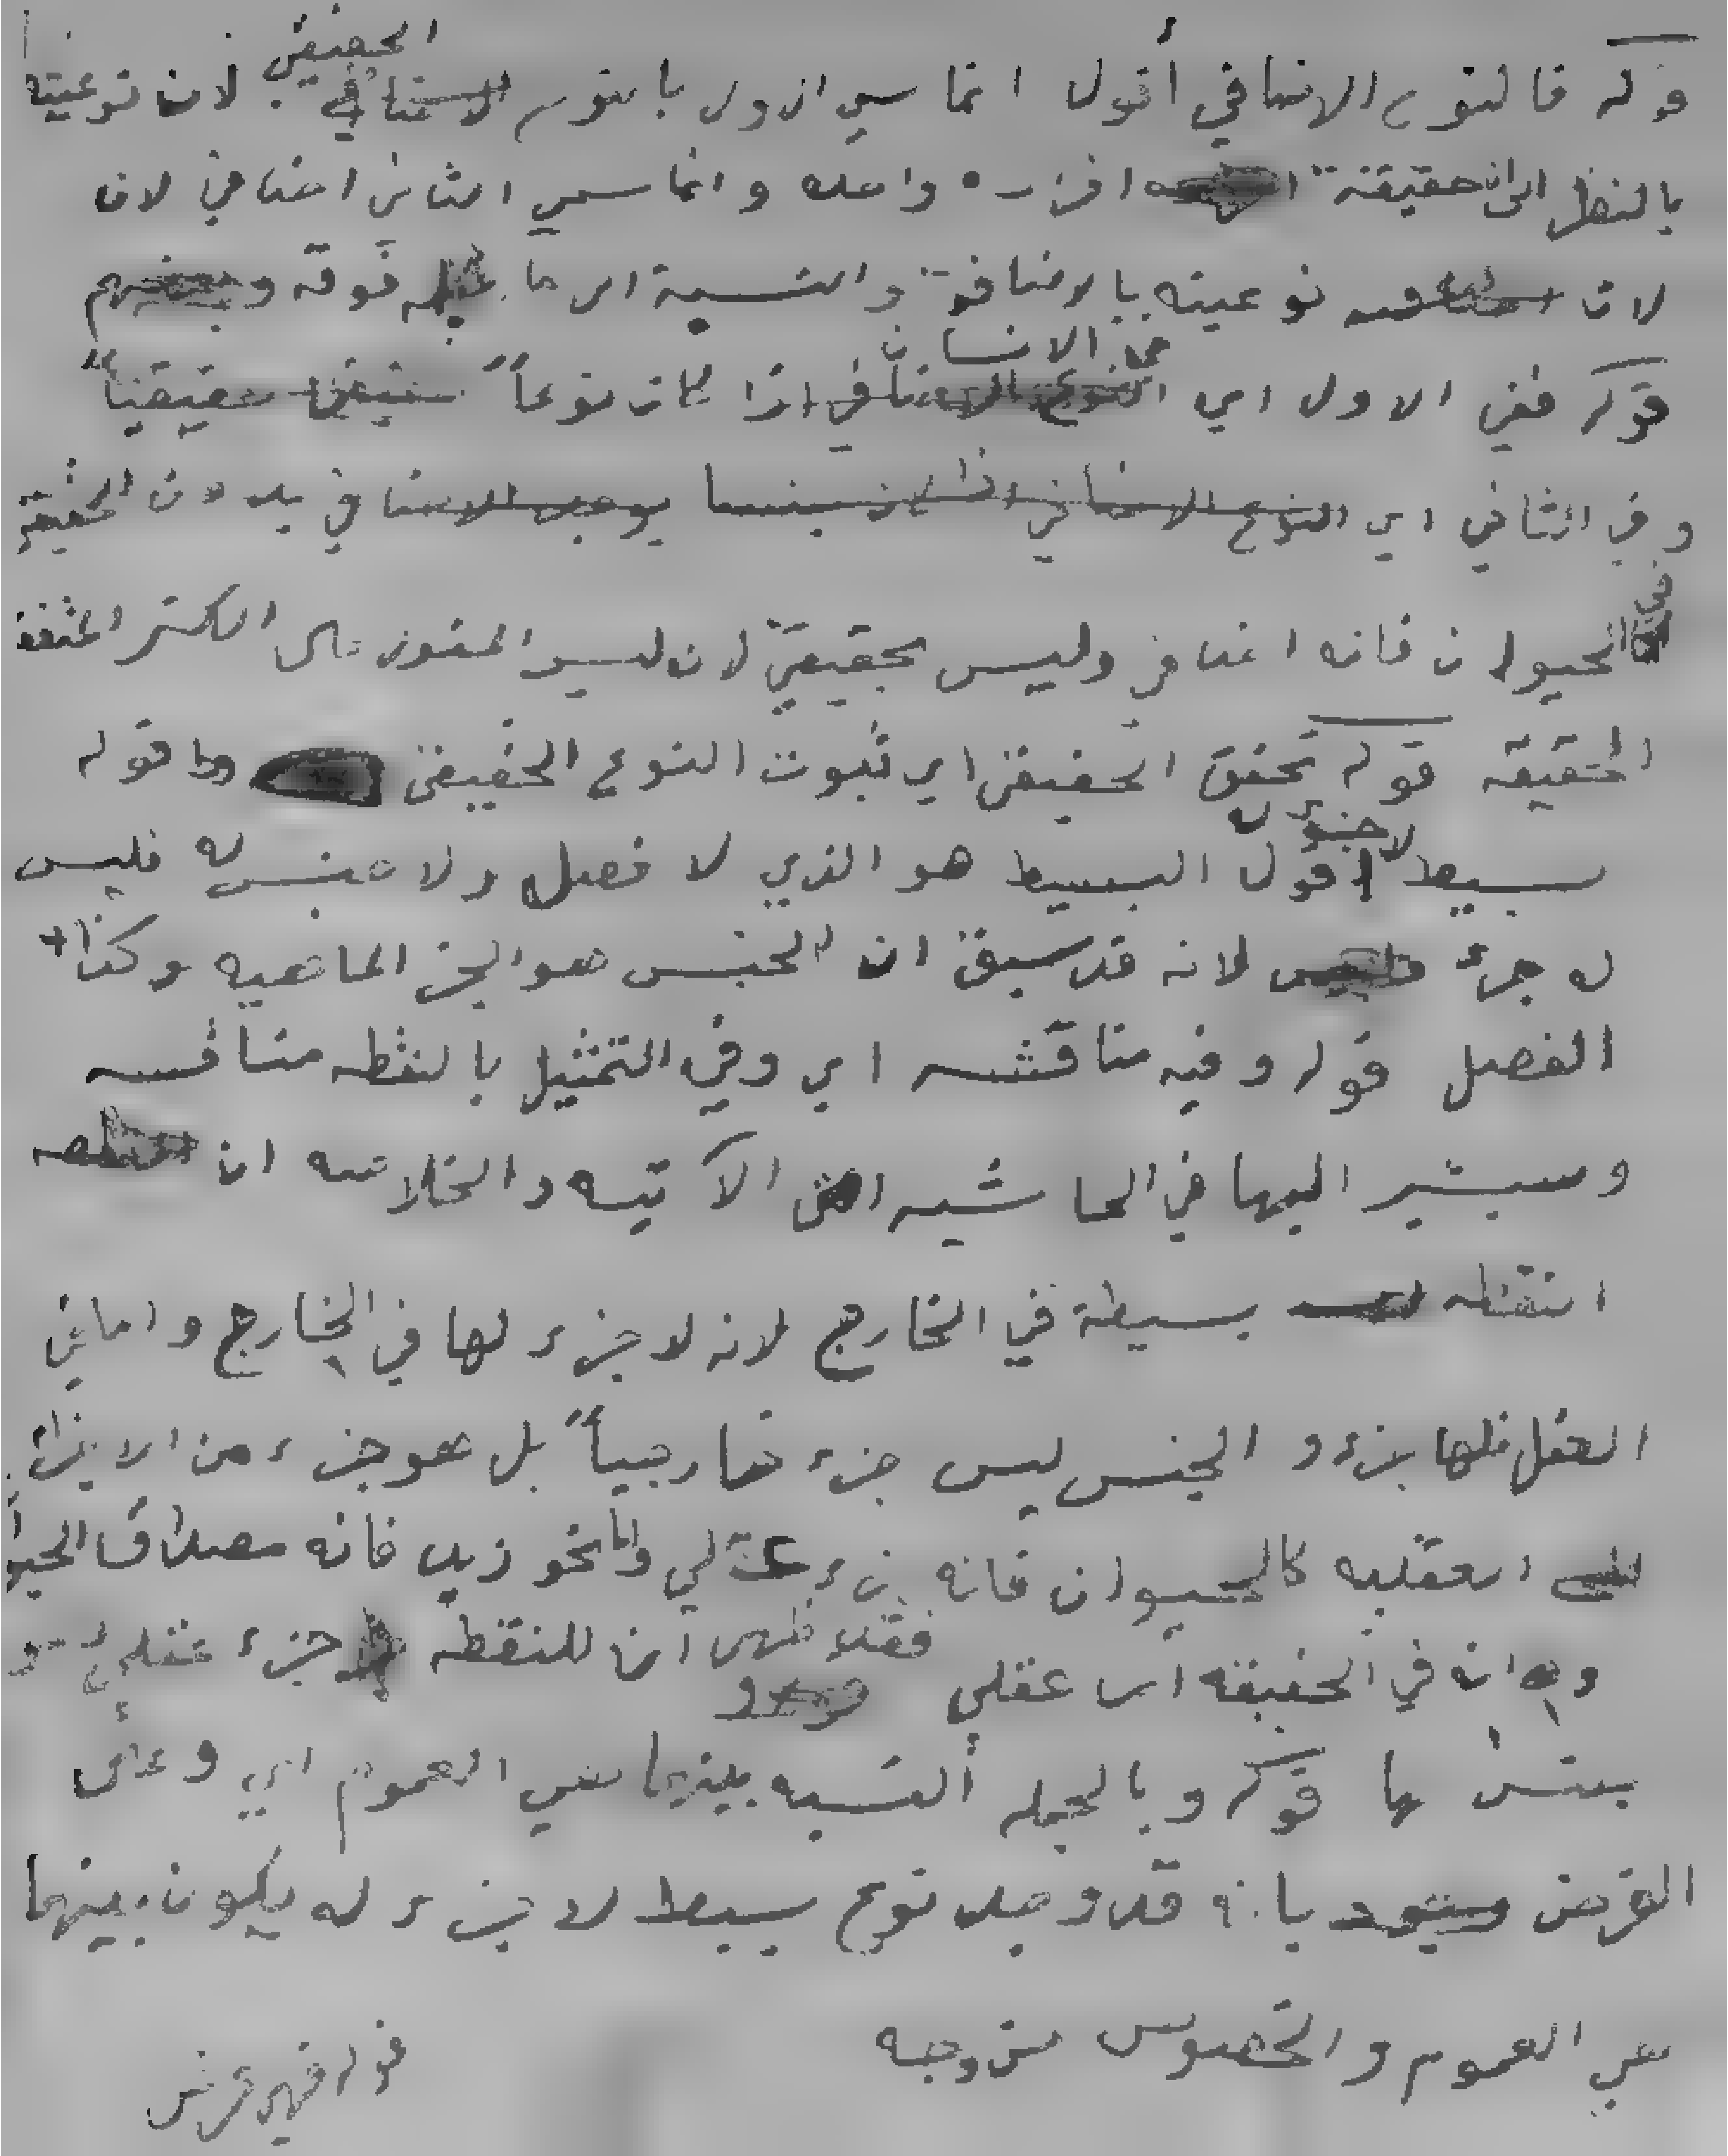 قوله فالنوع الاضافي أقول انما سمي الاول بالنوع الحقيقي لان نوعيته
بالنظر الى حقيقته افراده واحده وانما سمي الثاني اضافي لان
لان نوعيته بالاضافة والنسبة الى ما فوقه وبعضهم
قوله ففي الاول اي في الانسان اذا كان نوعاً حقيقياً
وفي الثاني اي النوع الاضافي يوجد الاضافي بدون الحقيقي
في الحيوان فانه اضافي وليس بحقيقي لان ليس المقول على الكثير المتفقة
الحقيقه قوله تحقق الحقيقي اي ثبوت النوع الحقيقي قوله
بسيط لا جزؤ له أقول البسيط هو الذي لا فصل ولا جنس له فليس
له جزء لانه قد سبق ان الجنس هو الجزء الماهيه وكذا
الفصل قوله وفيه مناقشه اي وفي التمثيل بالنقطه مناقشه
وسيشير اليها في الحاشيه الآتيه والخلاصه ان
النقطه بسيطة في الخارج لانه لا جزء لها في الخارج واما في
العقل فلها جزء و الجنس ليس جزء خارجياً بل هو جزء من الاجزاء
العقليه كالحيوان فانه جزء عقلي وانما نحو زيد فانه مصداق الحيوان
وانه في الحقيقه امر عقلي فقد ظهر ان للنقطه جزء عقلي
قوله وبالجمله النسبه بينهما هي العموم اي وعلى
الفرض بانه قد وجد نوع بسيط لا جزء له يكون بينهما
هي العموم والخصوص من وجه